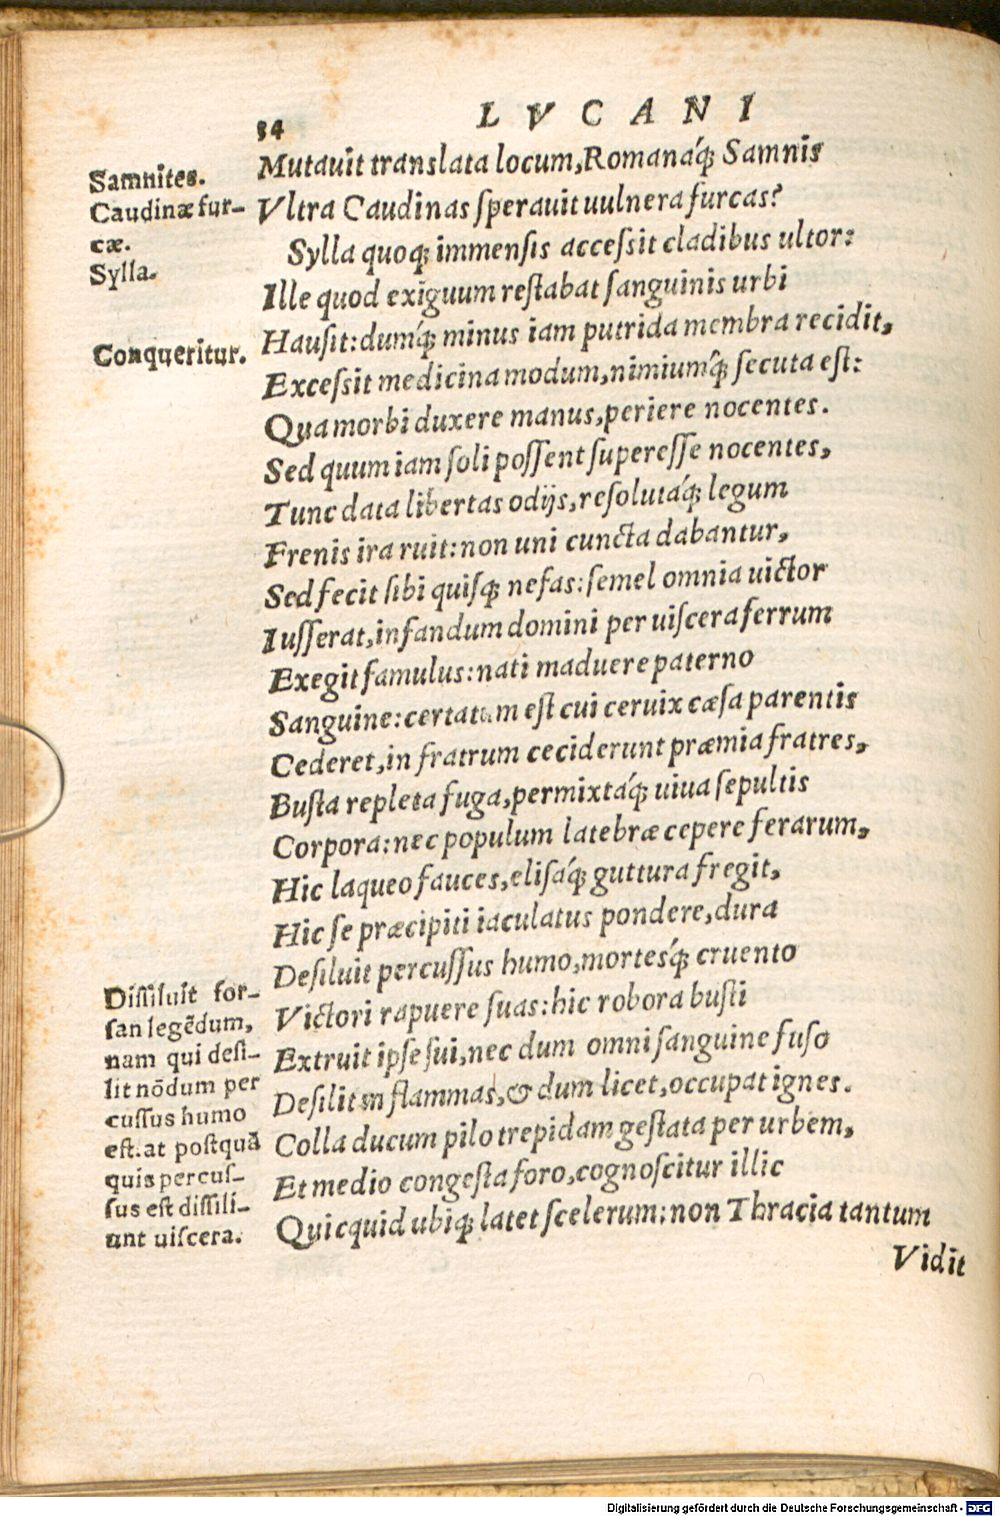 34
LVCANI
Mutauit translata locum, Romanáq; Samnis
Vltra Caudinas sperauit uulnera furcas?
Sylla quoq; immensis accessit cladibus ultor:
Ille quod exiguum restabat sanguinis urbi
Hausit: dumq́; minus iam putrida membra recidit,
Excessit medicina modum, nimiumq́; secuta est:
Qua morbi duxere manus, periere nocentes.
Sed quum iam soli possent superesse nocentes,
Tunc data libertas odijs, resolutáq; legum
Frenis ira ruit: non uni cuncta dabantur,
Sed fecit sibi quisq; nefas: semel omnia uictor
Iusserat, infandum domini per uiscera ferrum
Exegit famulus: nati maduere paterno
Sanguine: certatum est cui ceruix cæsa parentis
Cederet, in fratrum ceciderunt præmia fratres,
Busta repleta fuga, permixtáq; uiua sepultis
Corpora: nec populum latebræ cepere ferarum,
Hic laqueo fauces, elisáq; guttura fregit,
Hic se præcipiti iaculatus pondere, dura
Desiluit percussus humo, mortesq́; cruento
Victori rapuere suas: hic robora busti
Extruit ipse sui, nec dum omni sanguine fuso
Desilit in flammas, & dum licet, occupat ignes.
Colla ducum pilo trepidam gestata per urbem,
Et medio congesta foro, cognoscitur illic
Quicquid ubiq; latet scelerum: non Thracia tantum
Vidit
Samnites.
Caudinæ fur-
cæ.
Sylla.
Conqueritur.
Dissiluit for-
san legẽdum,
nam qui desi-
lit nõdum per
cussus humo
est. at postquã
quis percus-
sus est dissili-
unt uiscera.
Digitalisierung gefördert durch die Deutsche Forschungsgemeinschaft - DFG